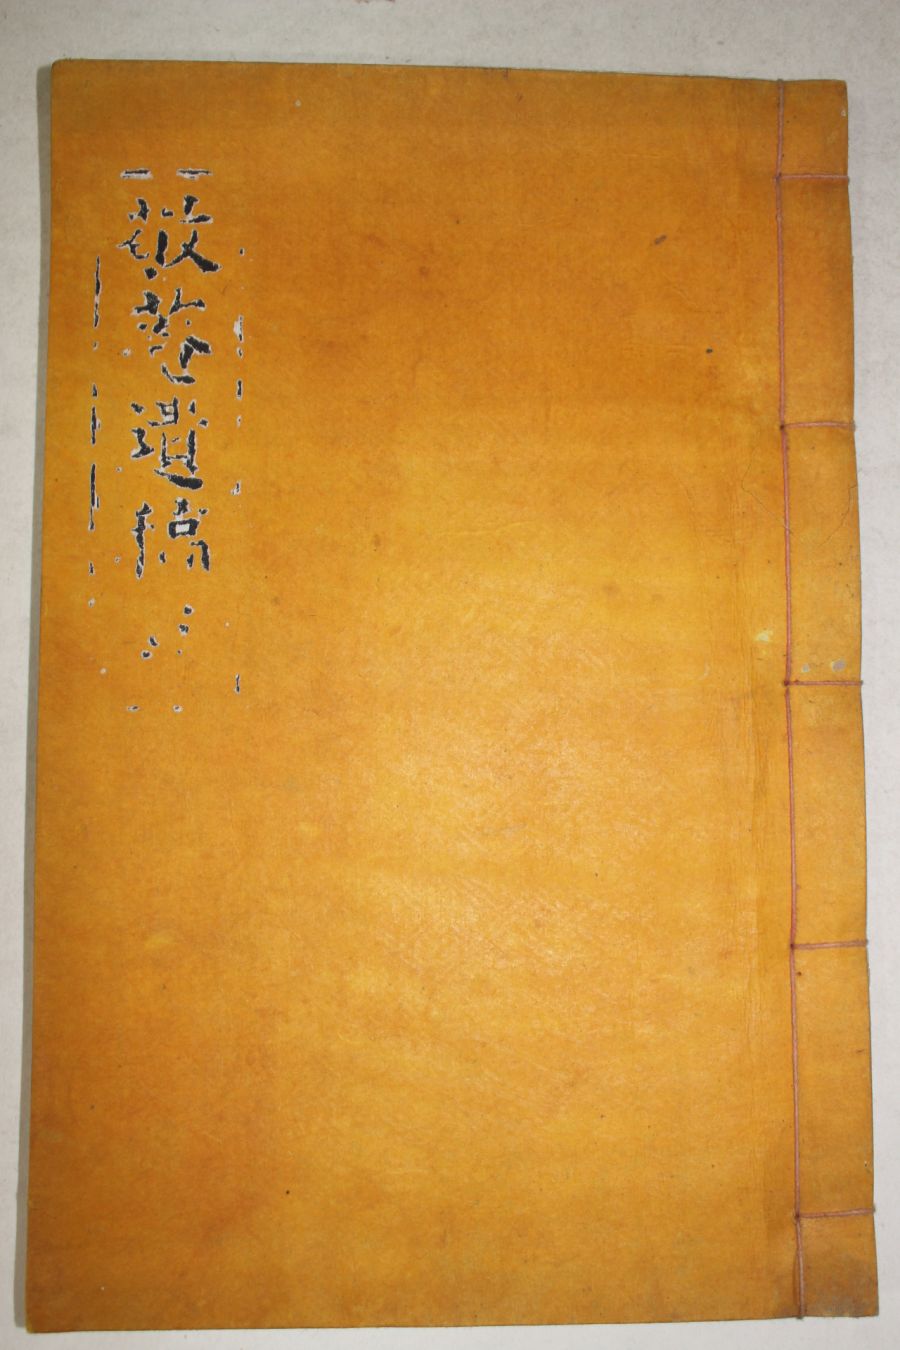 敬菴遺稿